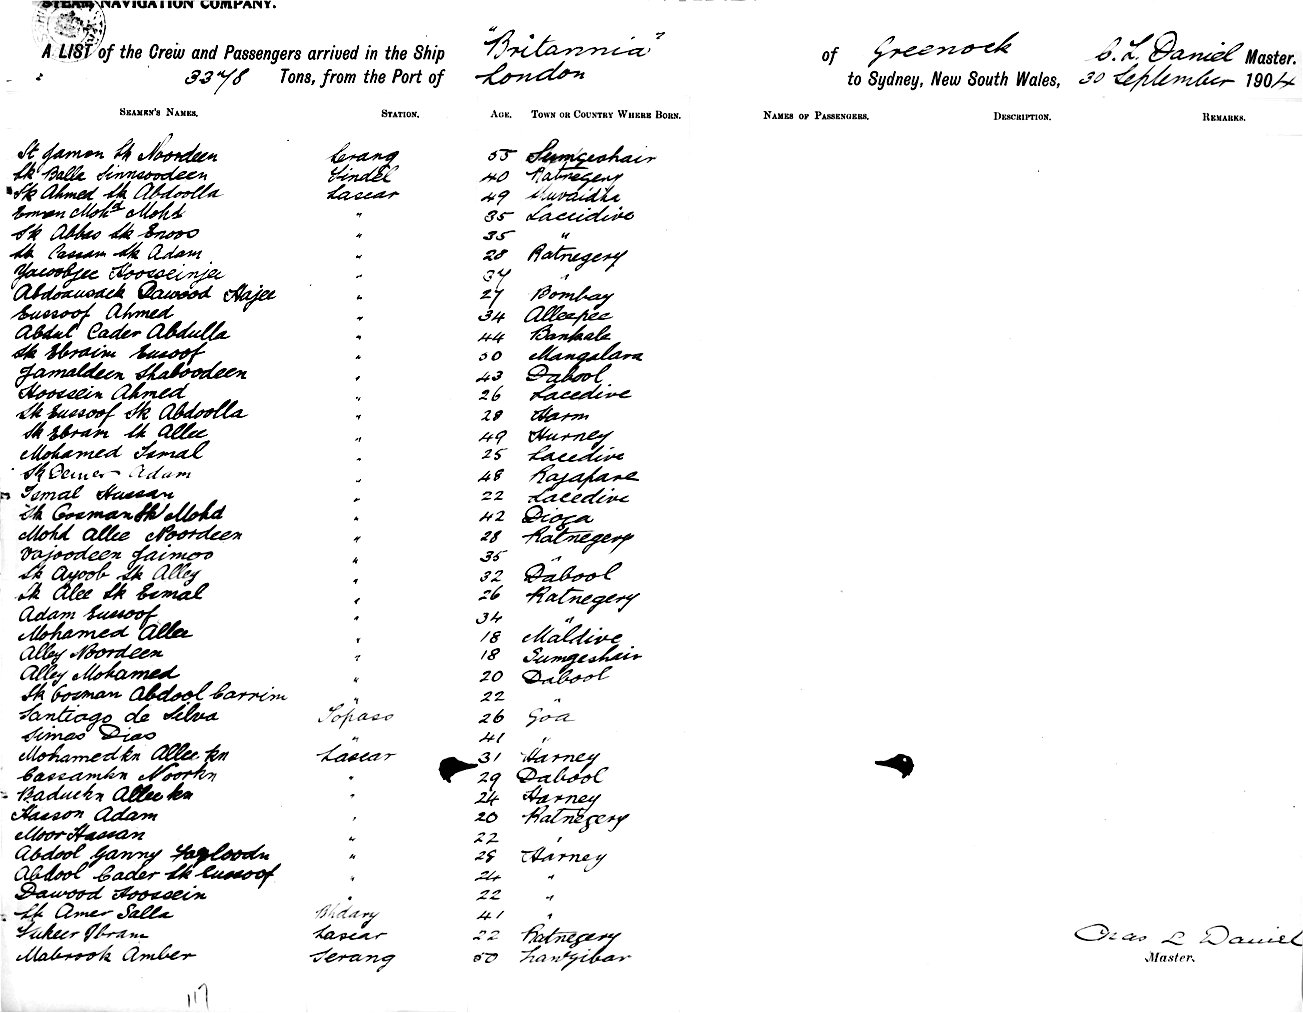 STEAM NAVIGATION COMPANY.
A LIST of the Crew and Passengers arrived in the Ship "Britannia" of Greenock C. L. Daniel Master.
3378 Tons, from the Port of London to Sydney, New South Wales, 30 September 1904
SEAMEN'S NAMES. STATION. AGE. TOWN OR COUNTRY WHERE BORN. NAMES OF PASSENGERS. DESCRIPTION. REMARKS.
Sk Jamon Sk Noordeen Serang 55 Sumgeshair
Sk Balla Sinnsoodeen Tindel 40 Ratnegery
Sk Ahmed Sk Abdoolla Lascar 49
Eman Mohd Mohd " 35 Laccidive
Sk Abbas Sk Enoos " 35 "
Sk Cassam Sk Adam " 28 Ratnegery
Yacoobjee Hoosseinjee " 34 "
Dawood Hajee " 27 Bombay
Eussoof Ahmed " 34 Alleepee
Abdul Cader Abdulla " 44 Bankale
Sk Ebraim Eusoof " 30 Mangalara
Jamaldeen Shaboodeen " 43 Dabool
Hoossein Ahmed " 26 Lacedive
Sk Eussoof Sk Abdoolla " 28 Harm
Sk Ebram Sk Allee " 49 Hurney
Mohamed Ismal " 25 Lacedive
Sk Adam " 48 Rajapare
Ismal Hussan " 22 Lacedive
Sk Cosman Sk Mohd " 42 Dioga
Mohd Allee Noordeen " 28 Ratnegery
Vajoodeen Jaimoo " 35 "
Sk Ayoob Sk Alley " 32 Dabool
Sk Alee Sk Esmal " 26 Ratnegery
Adam Eussoof " 34 "
Mohamed Allee " 18 Maldive
Alley Noordeen " 18 Sumgeshair
Alley Mohamed " 20 Dabool
Sk Cosman Abdool Carrim " 22 "
Santiago de Silva Topass 26 Goa
Simao Dias " 41 "
Mohamedkn Allee kn Lascar 31 Harney
Cassamkn Noorkn " 29 Dabool
Baduckn Allee kn " 24 Harney
Hasson Adam " 20 Ratnegery
Moor Hassan " 22 "
Abdool Ganny " 29 Harney
Abdool Cader Sk Eussoof " 24 "
Dawood Hoossein " 22 "
Sk Amer Salla Bhdary 41 "
Fukeer Ibram Lascar 22 Ratnegery
Mabrook Amber Serang 50 Zanzibar
Chas L Daniel
Master.
117